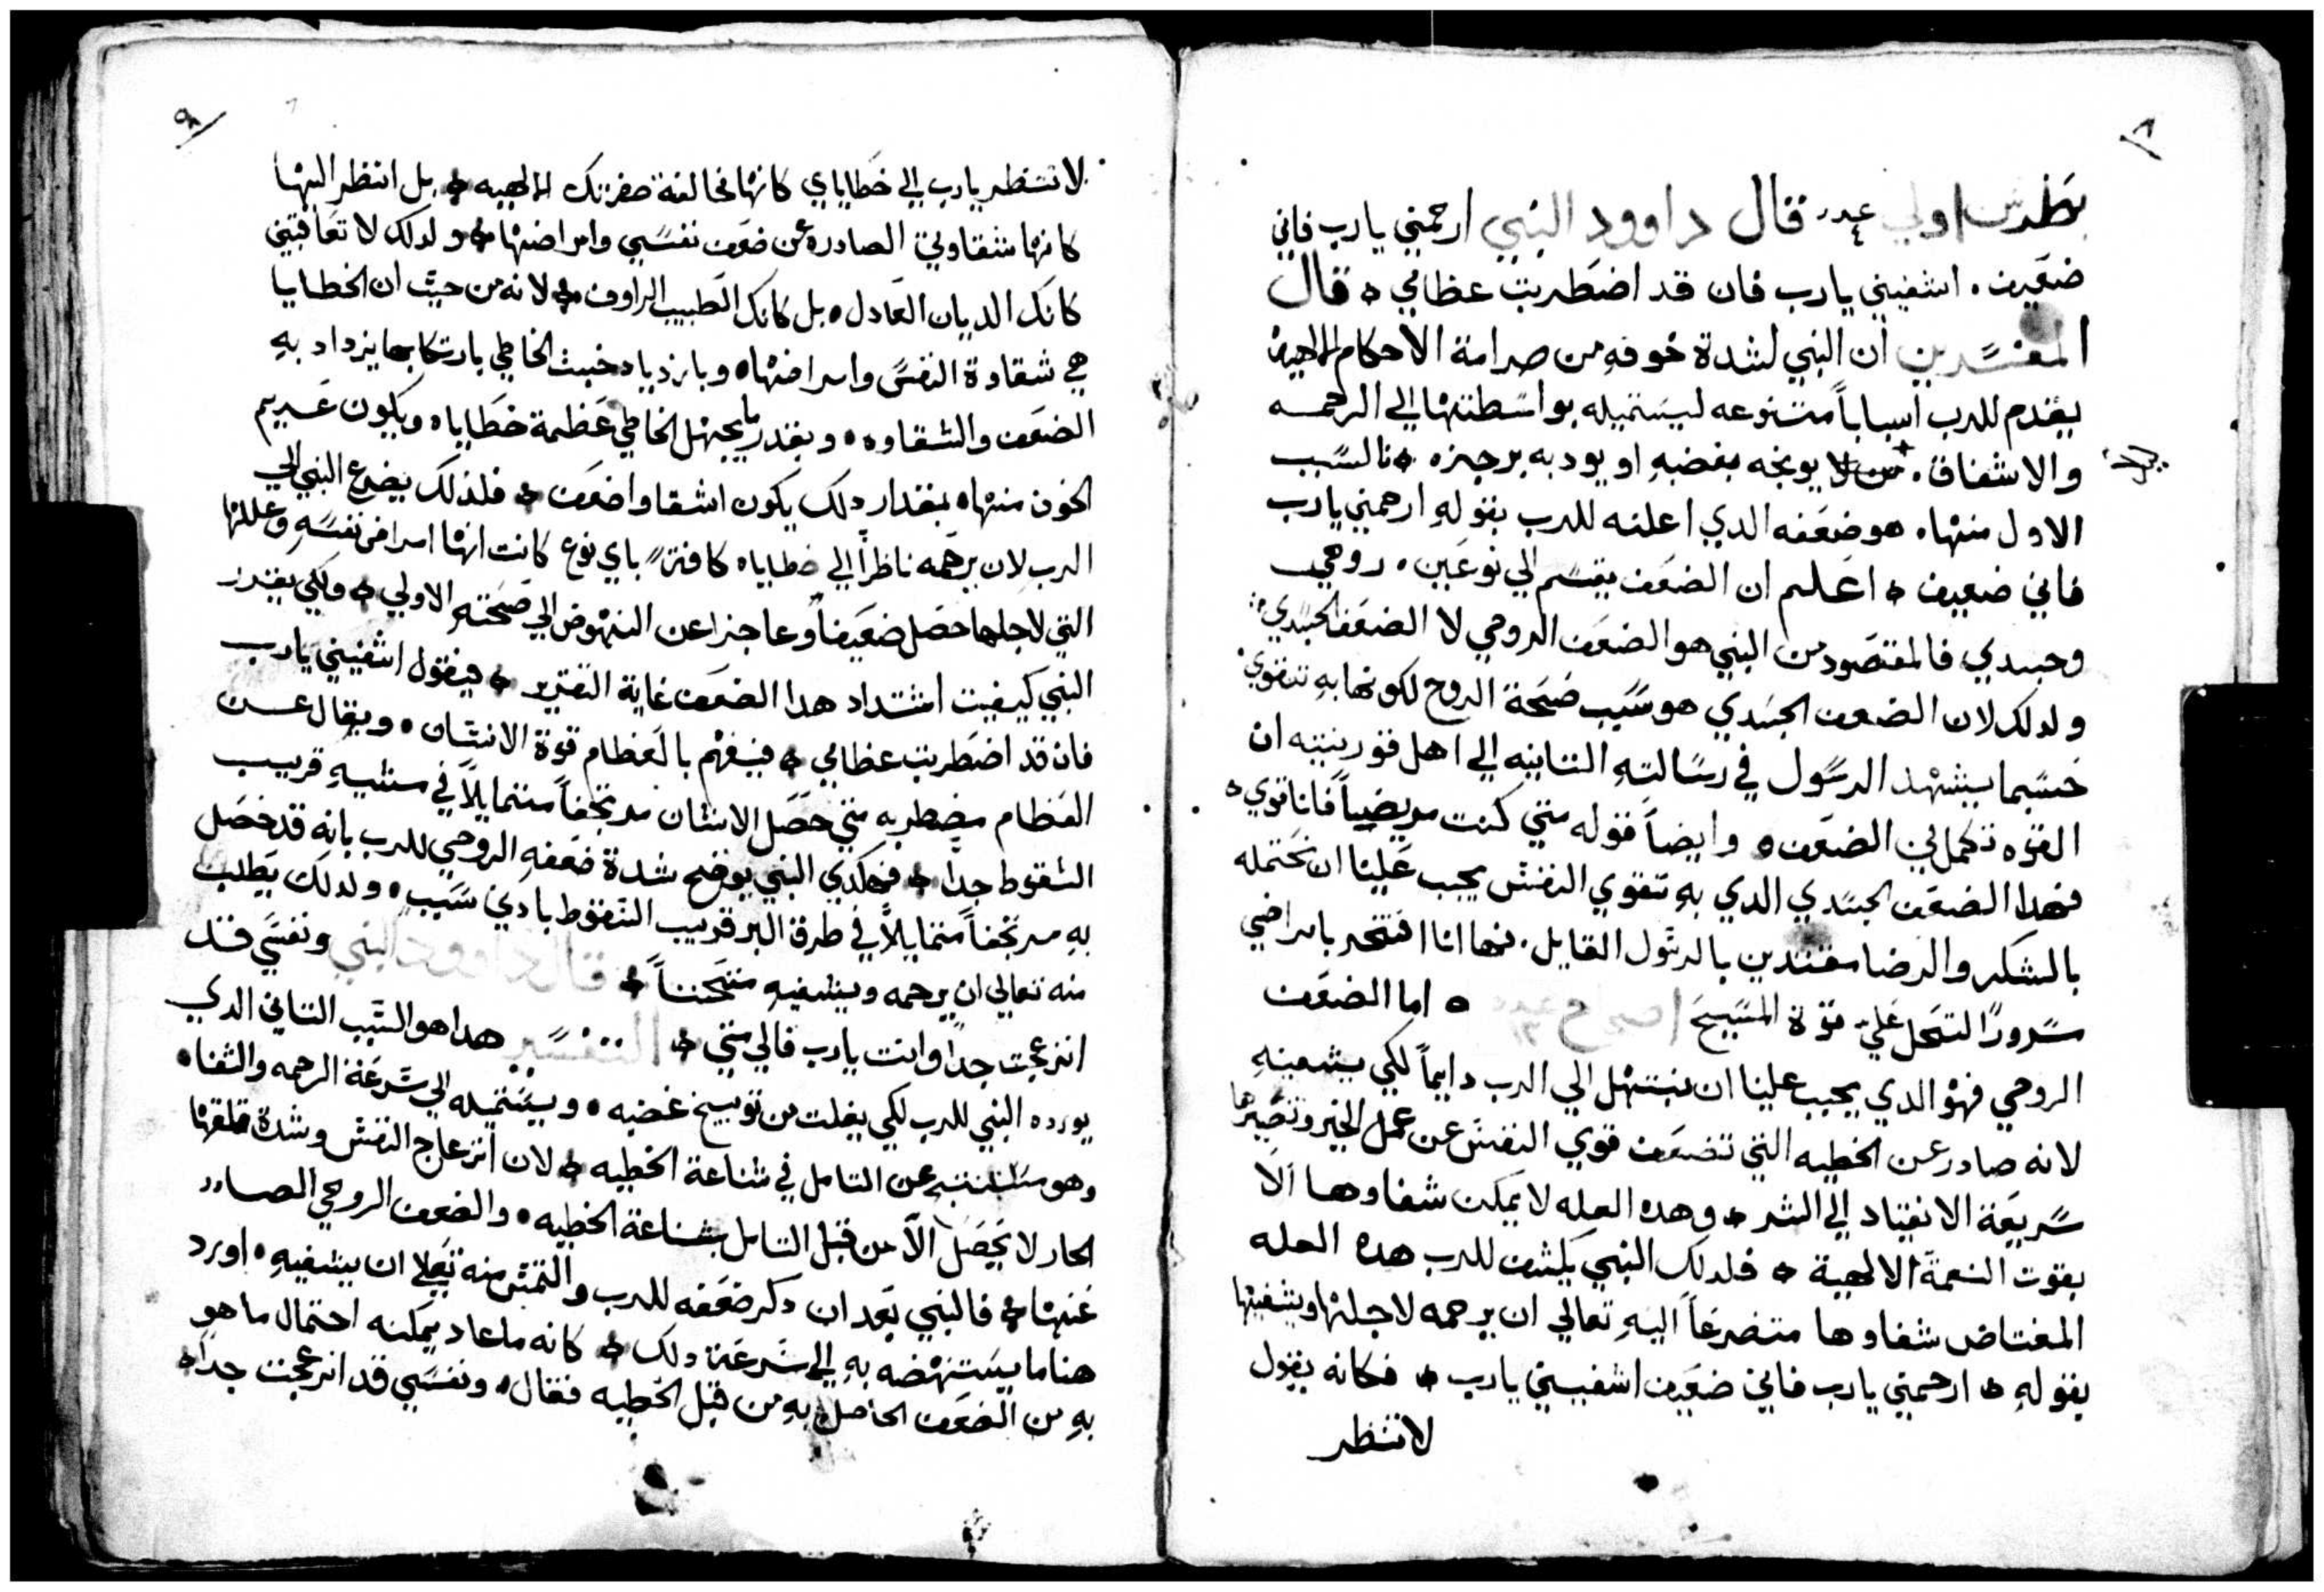 ٨
بطرس اولي عدد ٤ قال داوود النبي ارحمني يا رب فاني
ضعيف . اشفيني يا رب فان قد اضطربت عظامي ٥ قال
المفسرين ان النبي لشدة خوفهِ من صرامة الاحكام الالهية
يقدم للرب اسباباً متنوعه ليستميله بواسطتها الي الرحمه
والاشفاق . لا يوبخه بغضبهِ او يودبه برجزه ٥ فالسبب
الاول منها . هو ضعفه الدي اعلنه للرب بقولهِ ارحمني يا رب
فاني ضعيف ٥ اعلم ان الضعف يقسم الي نوعين . روحي
وجسدي فالمقصود من النبي هو الضعف الروحي لا الضعف الجسدي
ولدلك لان الضعف الجسدي هو سبب صحة الروح لكونها بهِ تتقوي
حسبما يشهد الرسول في رسالتهِ التانيه الي اهل قورنتيه ان
القوه تكمل في الضعف ٥ وايضاً قوله متي كنت مريضاً فانا قوي ٥
فهدا الضعف الجسدي الدي بهِ تتقوي النفس يجب علينا ان نحتمله
بالشكر والرضا مقتديين بالرسول القايل . فها انا افتخر بامراضي
سروراً لتحل عليّ قوة المسيح ٥ اما الضعف
الروحي فهو الدي يجب علينا ان نبتهل الي الرب دايماً لكي يشفيهِ
لانه صادر عن الخطيه التي تضعف قوي النفس عن عمل الخير وتصيرها
سريعة الانقياد الي الشر ٥ وهده العله لا يمكن شفاوها الا
بقوت النعمة الالهية ٥ فلدلك النبي يكشف للرب هده العله
المغتاض شفاوها متضرعاً اليهِ تعالي ان يرحمه لاجلها ويشفيها
بقولهِ ٥ ارحمني يا رب فاني ضعيف اشفيني يا رب ٥ فكانه يقول
لا تنظر
٩
لا تنظر يا رب الي خطاياي كانها مخالفة حضرتك الالهيه ٥ بل انظر اليها
كانها شقاوتي الصادرة عن ضعف نفسي وامراضها ٥ ولدلك لا تعاقبني
كانك الديان العادل ٥ بل كانك الطبيب الراوف ٥ لانه من حيث ان الخطايا
هي شقاوة النفس وامراضها ٥ وبازدياد خبث الخاطي بارتكابها يزداد بهِ
الضعف والشقاوه ٥ وبقدر ما يجهل الخاطي عظمة خطاياه ويكون عديم
الخوف منها ٥ بمقدار دلك يكون اشقا واضعف ٥ فلذلك يضرع النبي الي
الرب لان يرحمه ناظراً الي خطاياه كافةً باي نوع كانت انها امراض نفسهِ وعللها
التي لاجلها حصل ضعيفاً وعاجزا عن النهوض الي صحتهِ الاولي ٥ ولكي يقدر
النبي كيفيت اشتداد هدا الضعف غاية التقدير ٥ فيقول اشفيني يا رب
فان قد اضطربت عظامي ٥ فيفهم بالعظام قوة الانسان ٥ ويقال عن
العظام مضطربه متي حصل الانسان مرتجفاً متمايلاً في مشيهِ قريب
السقوط جداً ٥ فهكذي النبي يوضح شدة ضعفهِ الروحي للرب بانه قد حصل
بهِ مرتجفاً متمايلاً في طرق البر قريب السقوط بادني سبب ٥ ولدلك يطلب
منه تعالي ان يرحمه ويشفيهِ متحنناً ٥ قال داوود النبي ونفسي قد
انزعجت جداً وانت يا رب فالي متي ٥ التفسير هدا هو السبب التاني الدي
يورده النبي للرب لكي يفلت من توبيخ غضبه ٥ ويستميله الي سرعة الرحمه والشفاء
وهو عن التامل في شناعة الخطيه ٥ لان انزعاج النفس وشدة قلقها
الحار لا يحصل الا من قبل التامل بشناعة الخطيه ٥ والضعف الروحي الصادر
عنها ٥ فالنبي بعد ان دكر ضعفه للرب والتمس منه تعالي ان يشفيهِ ٥ اورد
هنا ما يستنهضه بهِ الي سرعة دلك ٥ كانه ما عاد يمكنه احتمال ما هو
بهِ من الضعف الحاصل بهِ من قبل الخطيه فقال ٥ ونفسي قد انزعجت جداً ٥